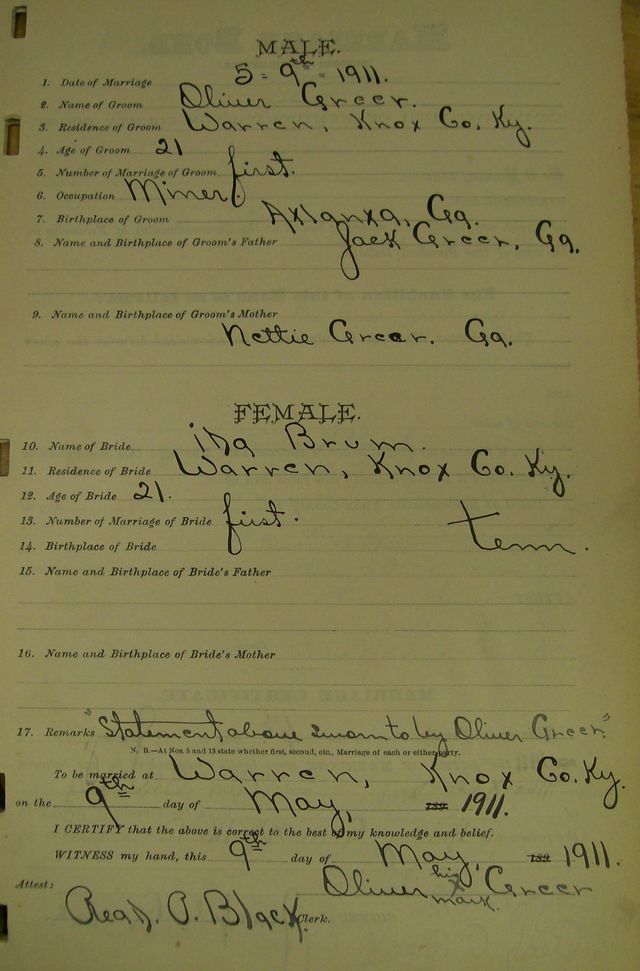 MALE.
1. Date of Marriage 5-9th-1911.
2. Name of Groom Oliver Greer.
3. Residence of Groom Warren, Knox Co, Ky.
4. Age of Groom 21
5. Number of Marriage of Groom first.
6. Occupation Miner.
7. Birthplace of Groom Atlanta, Ga.
8. Name and Birthplace of Groom's Father Jack Greer, Ga.
9. Name and Birthplace of Groom's Mother
Nettie Greer. Ga.
FEMALE.
10. Name of Bride Ida
11. Residence of Bride Warren, Knox Co. Ky.
12. Age of Bride 21.
13. Number of Marriage of Bride first.
14. Birthplace of Bride Tenn.
15. Name and Birthplace of Bride's Father
16. Name and Birthplace of Bride's Mother
17. Remarks "Statement above sworn to by Oliver Greer"
N. B.—At Nos. 5 and 13 state whether first, second, etc., Marriage of each or either party.
To be married at Warren, Knox Co. Ky.
on the 9th day of May, 189 1911.
I CERTIFY that the above is correct to the best of my knowledge and belief.
WITNESS my hand, this 9th day of May, 189 1911.
Oliver his x mark Greer
Attest:
Read. P. Black. Clerk.